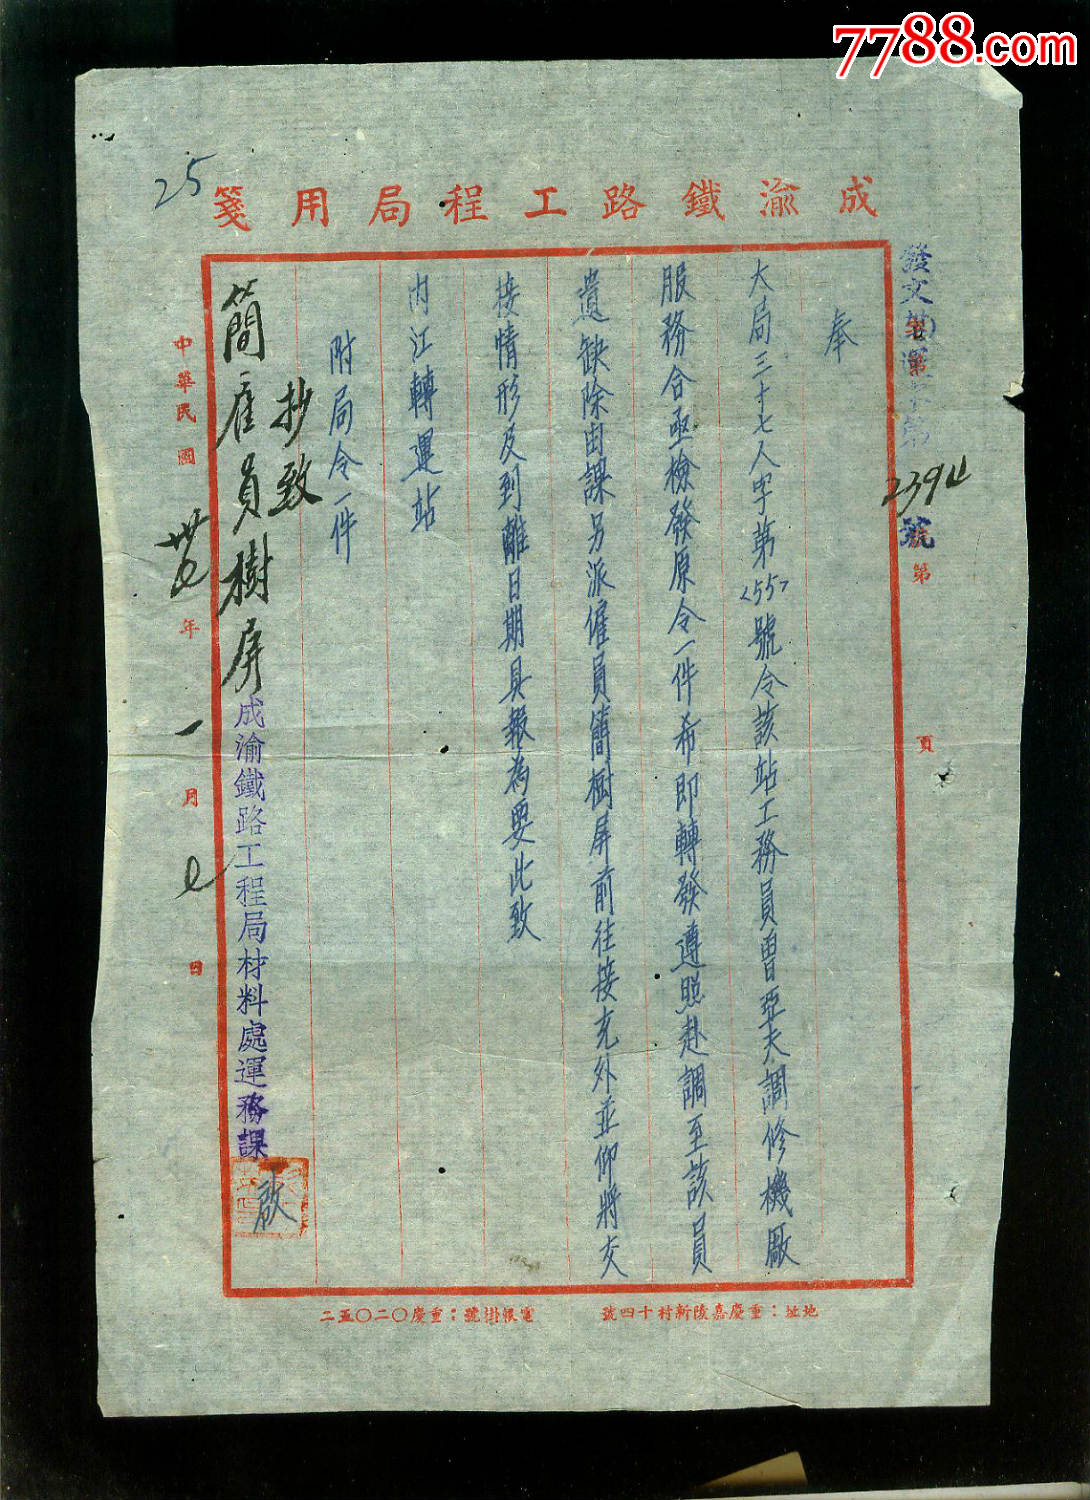 7788.com
25
成渝鐵路工程局用箋
發文
第
2394
號
第
頁
奉
大局三十七人字第〈557號令該站工務員曾亞夫調修機厰
服務合亟檢發原令一件希即轉發遵照赴調至該員
遺缺除由課另派僱員簡樹屏前往接充外並仰將交
接情形及到離日期具報為要此致
內江轉運站
附局令一件
抄致
簡雇員樹屏
成渝鐵路工程局材料處運務課
啟
中華民國 年 一 月 日
地址：重慶嘉陵新村十四號
電報掛號：重慶〇二〇五二